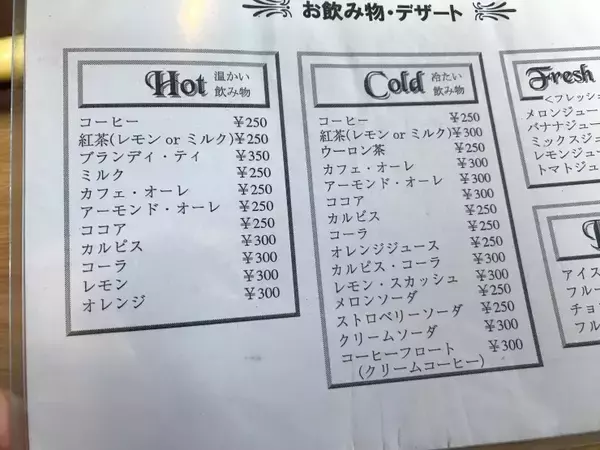 お飲み物・デザート
Hot 温かい飲み物
コーヒー ¥250
紅茶(レモン or ミルク) ¥250
ブランディ・ティ ¥350
ミルク ¥250
カフェ・オーレ ¥250
アーモンド・オーレ ¥250
ココア ¥250
カルピス ¥300
コーラ ¥300
レモン ¥300
オレンジ ¥300
Cold 冷たい飲み物
コーヒー ¥250
紅茶(レモン or ミルク) ¥300
ウーロン茶 ¥250
カフェ・オーレ ¥300
アーモンド・オーレ ¥300
ココア ¥300
カルピス ¥250
コーラ ¥250
オレンジジュース ¥250
カルピス・コーラ ¥300
レモン・スカッシュ ¥300
メロンソーダ ¥250
ストロベリーソーダ ¥250
クリームソーダ ¥300
コーヒーフロート ¥300
(クリームコーヒー)
Fresh
<フレッシ
メロンジュー
バナナジュー
ミックスジュ
レモンジュー
トマトジュ
アイス
フルー
チョ
フル